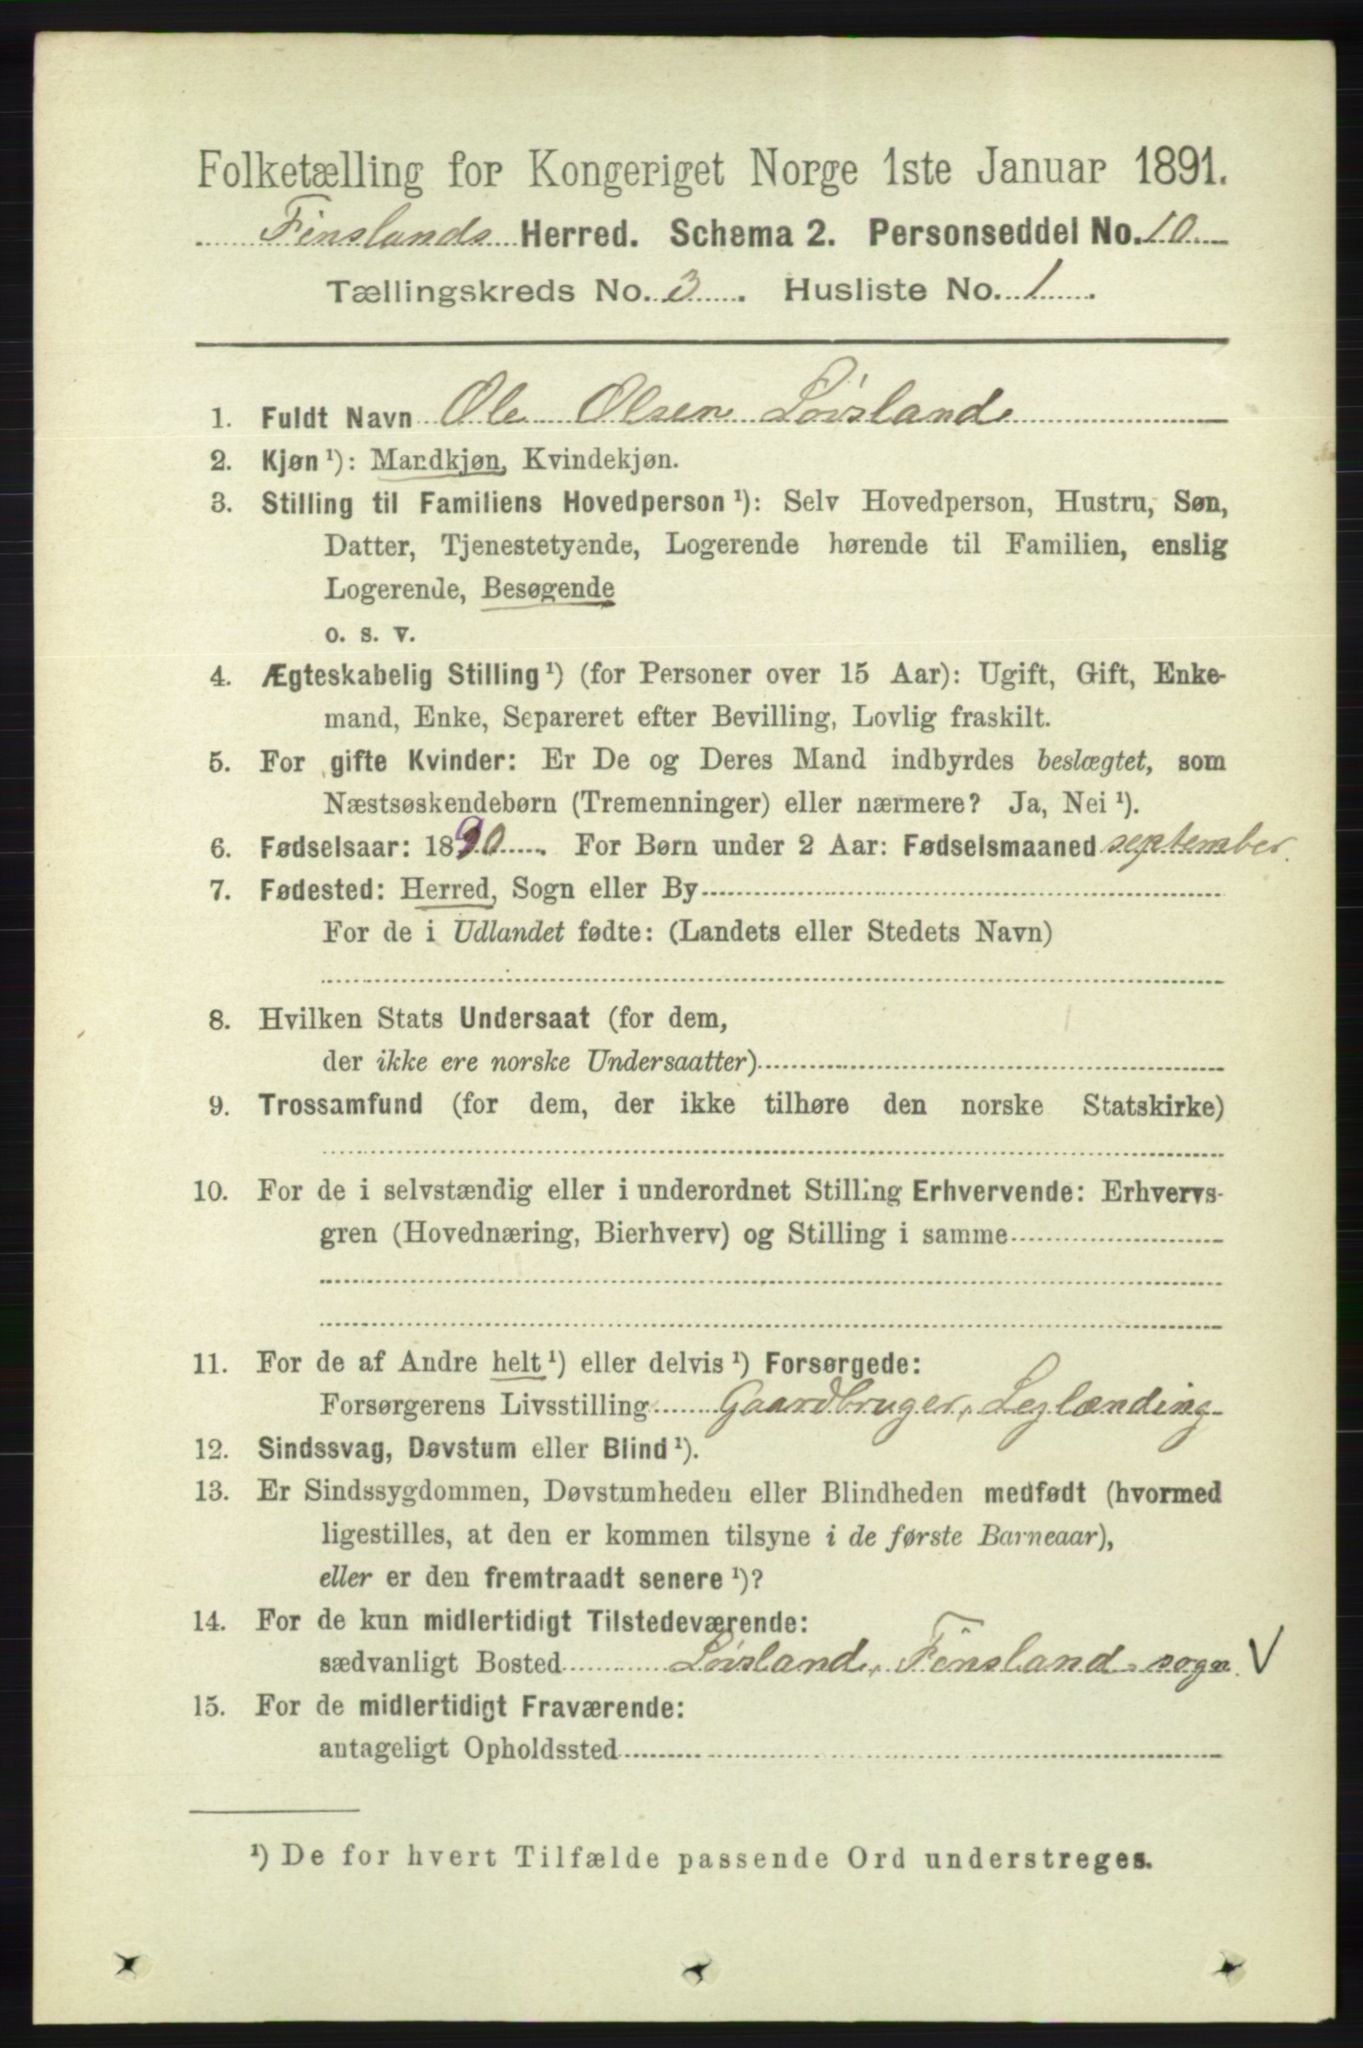 Folketælling for Kongeriget Norge 1ste Januar 1891.
Finslands Herred. Schema 2. Personseddel No. 10
Tællingskreds No. 3. Husliste No. 1.
1. Fuldt Navn Ole Olsen Løisland
2. Kjøn ¹): Mandkjøn, Kvindekjøn.
3. Stilling til Familiens Hovedperson ¹): Selv Hovedperson, Hustru, Søn,
Datter, Tjenestetyende, Logerende hørende til Familien, enslig
Logerende, Besøgende
o. s. v.
4. Ægteskabelig Stilling ¹) (for Personer over 15 Aar): Ugift, Gift, Enke-
mand, Enke, Separeret efter Bevilling, Lovlig fraskilt.
5. For gifte Kvinder: Er De og Deres Mand indbyrdes beslægtet, som
Næstsøskendebørn (Tremenninger) eller nærmere? Ja, Nei ¹).
6. Fødselsaar: 1890. For Børn under 2 Aar: Fødselsmaaned september.
7. Fødested: Herred, Sogn eller By
For de i Udlandet fødte: (Landets eller Stedets Navn)
8. Hvilken Stats Undersaat (for dem,
der ikke ere norske Undersaatter)
9. Trossamfund (for dem, der ikke tilhøre den norske Statskirke)
10. For de i selvstændig eller i underordnet Stilling Erhvervende: Erhvervs-
gren (Hovednæring, Bierhverv) og Stilling i samme
11. For de af Andre helt ¹) eller delvis ¹) Forsørgede:
Forsørgerens Livsstilling Gaardbruger, Leglænding
12. Sindssvag, Døvstum eller Blind ¹).
13. Er Sindssygdommen, Døvstumheden eller Blindheden medfødt (hvormed
ligestilles, at den er kommen tilsyne i de første Barneaar),
eller er den fremtraadt senere ¹)?
14. For de kun midlertidigt Tilstedeværende:
sædvanligt Bosted Løisland, Finsland sogn. V
15. For de midlertidigt Fraværende:
antageligt Opholdssted
¹) De for hvert Tilfælde passende Ord understreges.